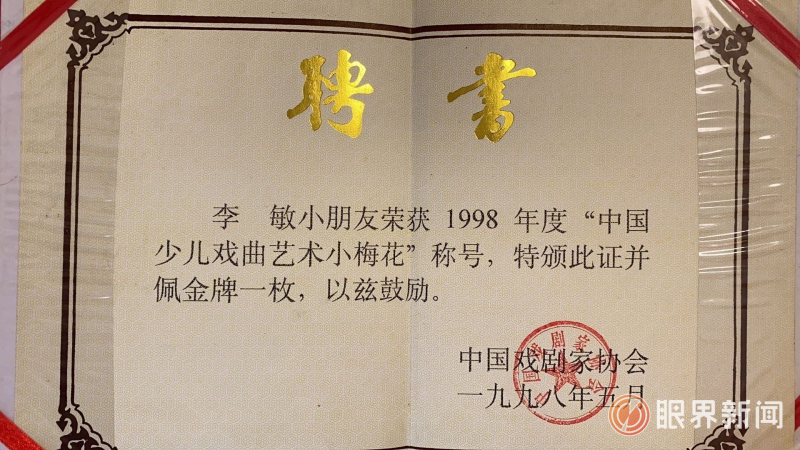 聘书
李 敏小朋友荣获 1998 年度“中国
少儿戏曲艺术小梅花”称号，特颁此证并
佩金牌一枚，以兹鼓励。
中国戏剧家协会
一九九八年五月
中国戏剧家协会
眼界新闻